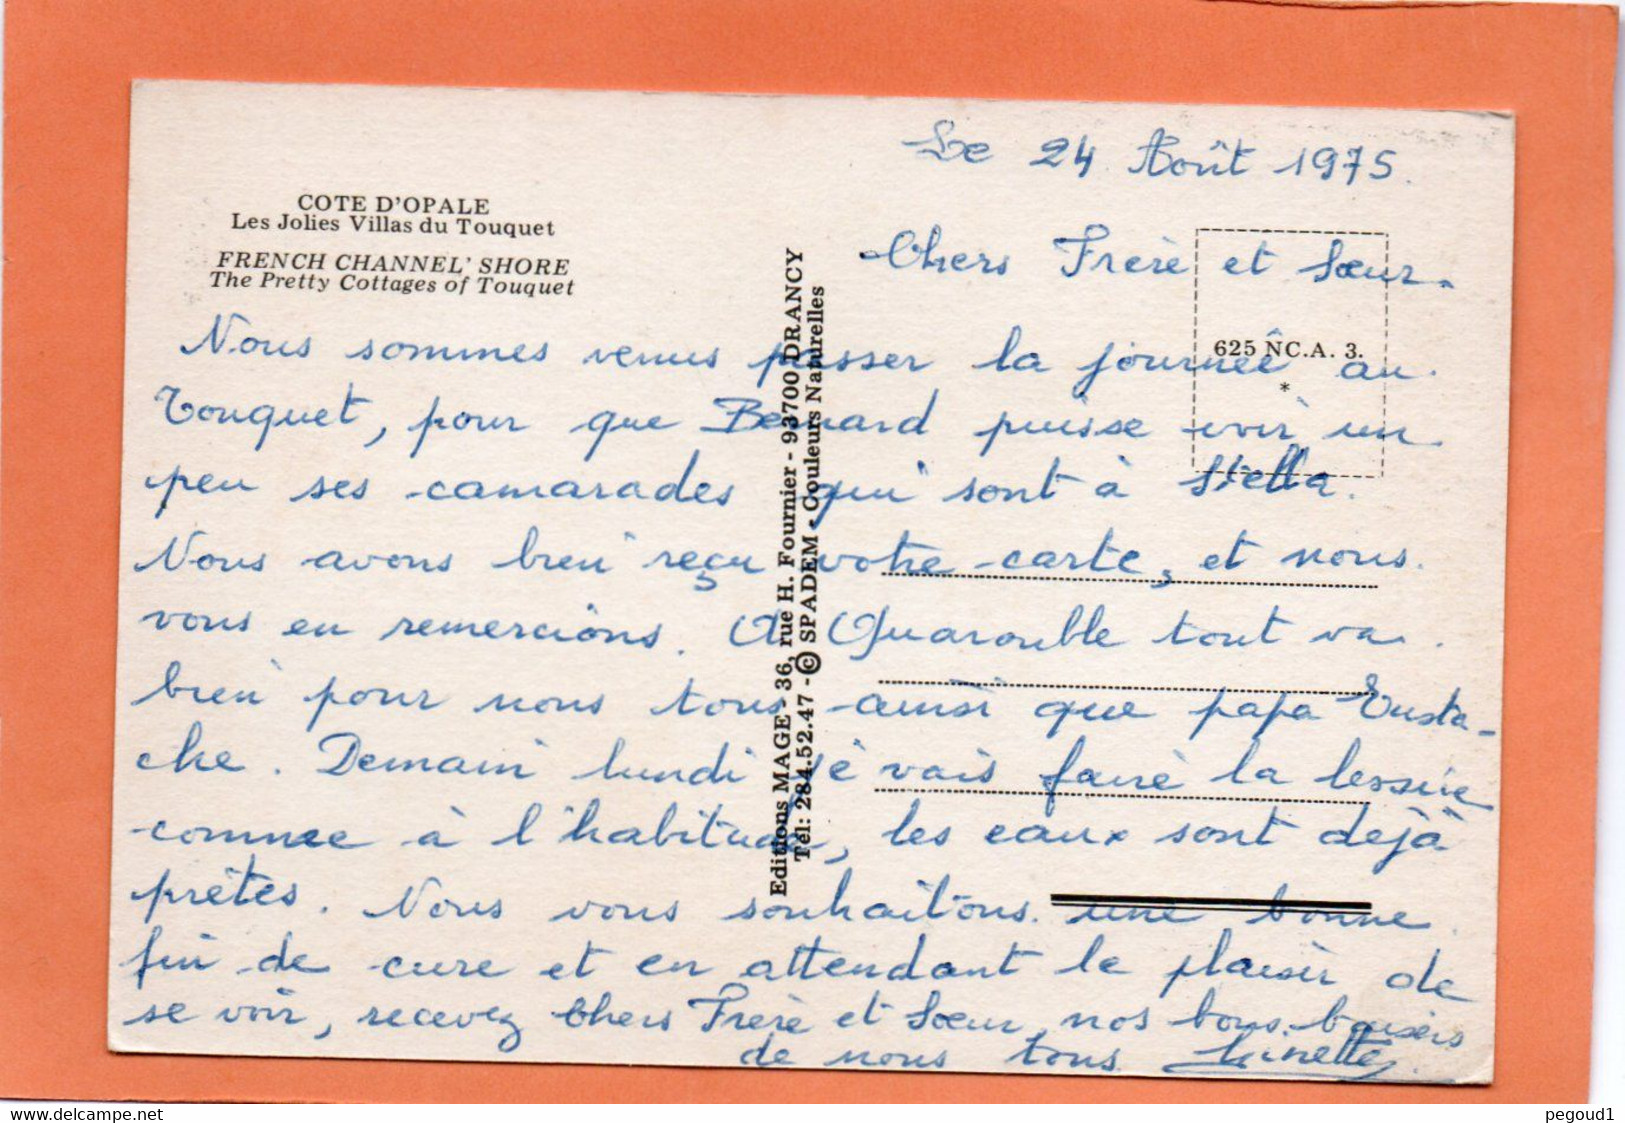 COTE D'OPALE
Les Jolies Villas du Touquet
FRENCH CHANNEL' SHORE
The Pretty Cottages of Touquet
Editions MAGE - 36, rue H. Fournier - 93700 DRANCY
Tél: 284.52.47 - © SPADEM - Couleurs Naturelles
625 NC.A. 3.
*
Le 24 Août 1975.
Chers Frère et Sœur.
Nous sommes venus passer la journée au
Touquet, pour que Bernard puisse voir un
peu ses camarades qui sont à Stella.
Nous avons bien reçu votre carte, et nous
vous en remercions. A Quarouble tout va
bien pour nous tous ainsi que papa Eusta-
che. Demain lundi je vais faire la lessive
comme à l'habitude, les eaux sont déjà
prêtes. Nous vous souhaitons une bonne
fin de cure et en attendant le plaisir de
se voir, recevez Chers Frère et Sœur, nos bons baisers
de nous tous.
pegoud1